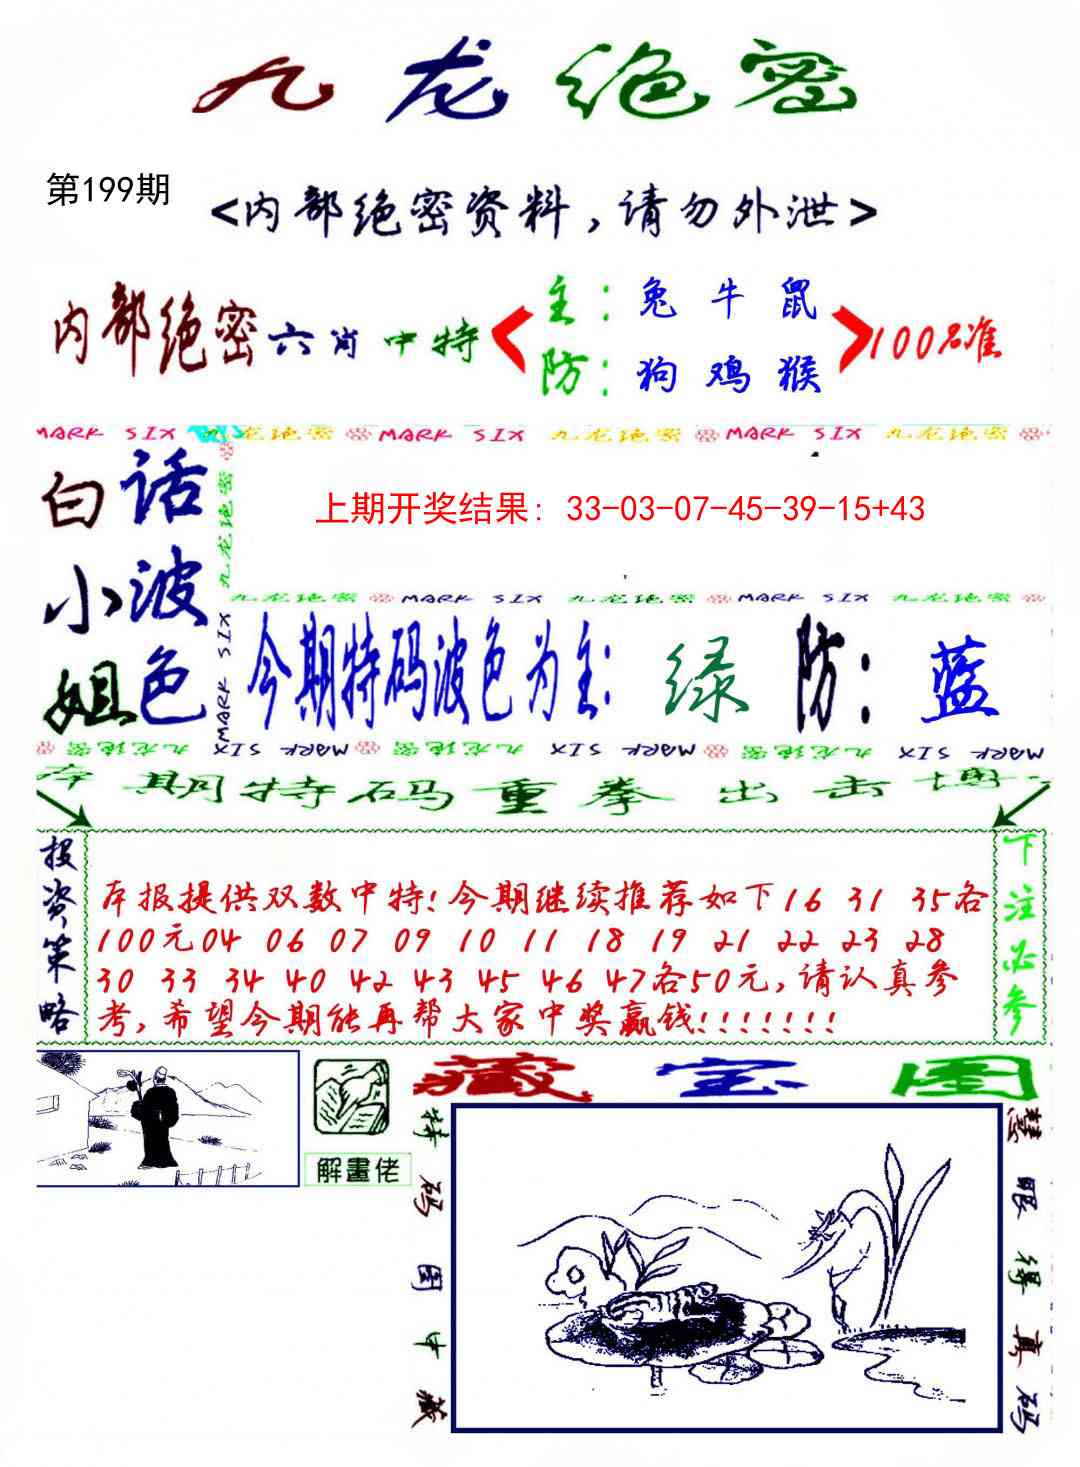 九龙绝密
第199期
<内部绝密资料,请勿外泄>
内部绝密六肖中特
主:兔 牛 鼠
防:狗 鸡 猴
100%准
MARK SIX 九龙绝密 MARK SIX 九龙绝密 MARK SIX 九龙绝密
白话
小波
姐色
九龙绝密
MARK SIX
上期开奖结果: 33-03-07-45-39-15+43
九龙绝密 MARK SIX 九龙绝密 MARK SIX 九龙绝密
今期特码波色为主: 绿 防: 蓝
九龙绝密 MARK SIX 九龙绝密 MARK SIX 九龙绝密 MARK SIX
本期特码重拳出击博
投资策略
本报提供双数中特!今期继续推荐如下16 31 35各
100元04 06 07 09 10 11 18 19 21 22 23 28
30 33 34 40 42 43 45 46 47各50元,请认真参
考,希望今期能再帮大家中奖赢钱!!!!!!!
下注必参
藏宝图
解畫佬
特码图中藏
慧眼得真码